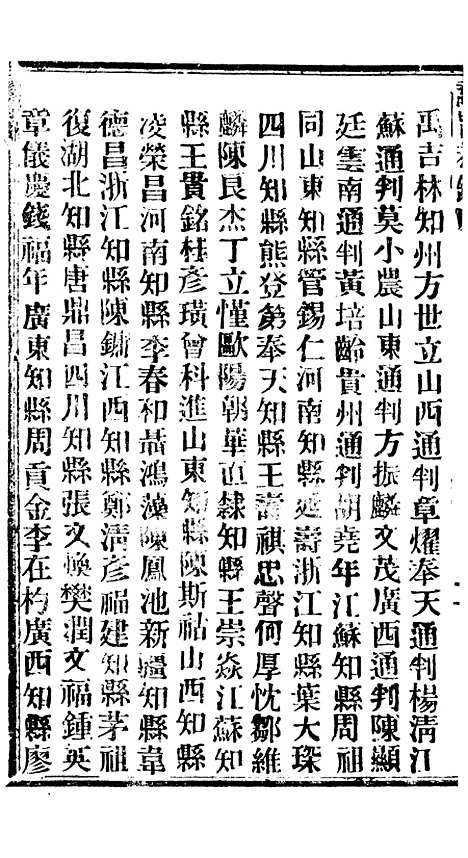 禹吉林知州方世立山西通判章燿奉天通判楊淸江
蘇通判莫小農山東通判方振麟文茂廣西通判陳顯
廷雲南通判黃培齡貴州通判胡堯年江蘇知縣周祖
同山東知縣管錫仁河南知縣延壽浙江知縣葉大琛
四川知縣熊登第奉天知縣王壽祺忠聲何厚忱鄒維
麟陳艮杰丁立慬歐陽朝華直隸知縣王崇焱江蘇知
縣王貫銘桂彥璜曾科進山東知縣陳斯祜山西知縣
凌榮昌河南知縣李春和聶鴻藻陳鳳池新疆知縣韋
德昌浙江知縣陳鏞江西知縣鄭淸彥福建知縣茅祖
復湖北知縣唐鼎昌四川知縣張文煥樊潤文福鍾英
章儀慶錢福年廣東知縣周貢金李在杓廣西知縣廖